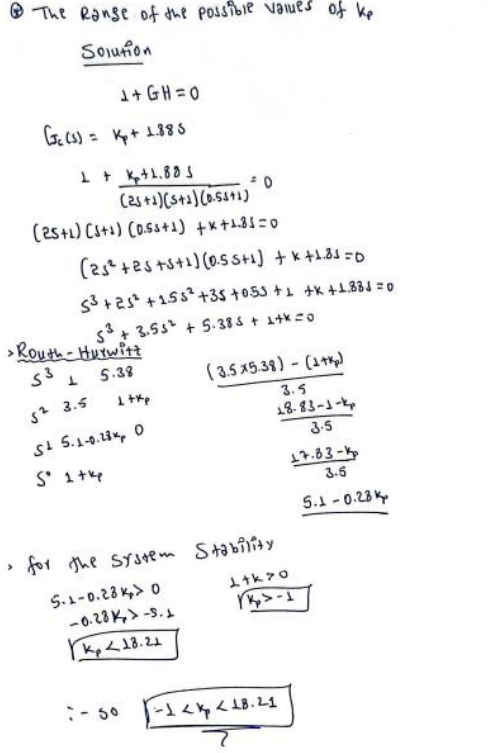 ⊛ The Range of the possible values of kp
Solution
1 + GH = 0
Gc(s) = Kp + 1.88 S
1 + Kp+1.88 S / (2S+1)(S+1)(0.5S+1) = 0
(2S+1)(S+1)(0.5S+1) + K + 1.8S = 0
(2S² + 2S + S + 1)(0.5S+1) + K + 1.8S = 0
S³ + 2S² + 1.5S² + 3S + 0.5S + 1 + K + 1.88S = 0
S³ + 3.5S² + 5.38S + 1+K = 0
> Routh - Hurwitt
S³ 1 5.38
S² 3.5 1+Kp
S¹ 5.1-0.28Kp 0
S° 1+Kp
(3.5 x 5.38) - (1+Kp) / 3.5
18.83-1-Kp / 3.5
17.83-Kp / 3.5
5.1 - 0.28Kp
> for the system Stability
5.1-0.28Kp > 0
-0.28Kp > -5.1
Kp < 18.21
1+K > 0
Kp > -1
:- so -1 < Kp < 18.21